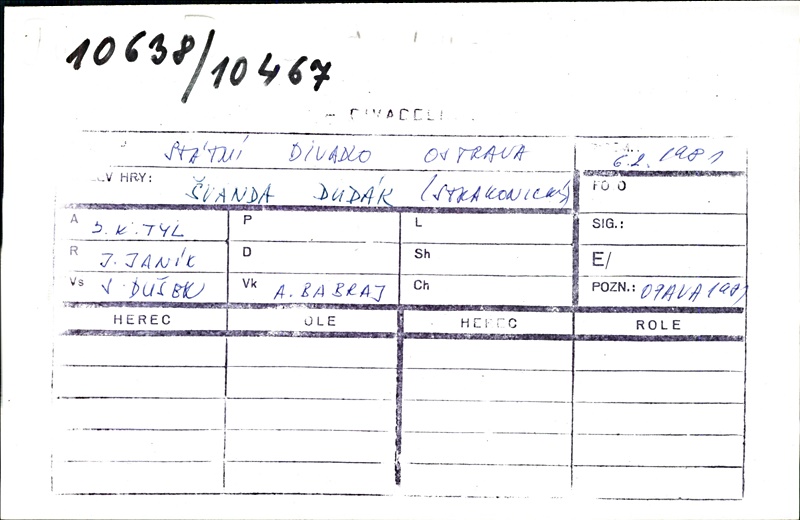 10638/10467
STÁTNÍ DIVADLO OSTRAVA
6.2.1981
V HRY: ŠVANDA DUDÁK (STRAKONICKÝ)
FOTO
A J. K. TYL
P
L
SIG.:
R J. JANÍK
D
Sh
E/
Vs J. DUŠEK
Vk A. BABRAJ
Ch
POZN.: OPAVA 1981
HEREC
OLE
HEREC
ROLE